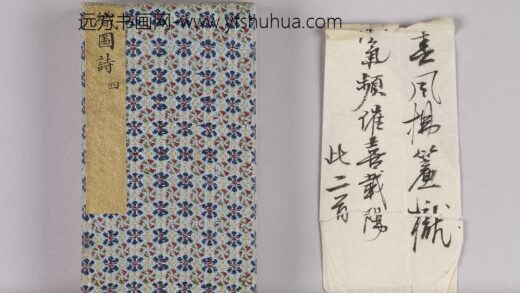 远方书画网 www.yfshuhua.com
圖詩 四
春風楊簾
氣頻催喜載陽
此二首